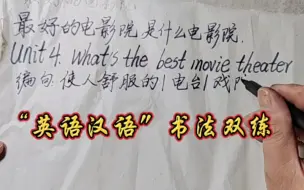 最好的电影院是什么电影院.
Unit 4. What's the best movie theater
偏向.使人舒服的|电台|戏
“英语汉语”书法双练